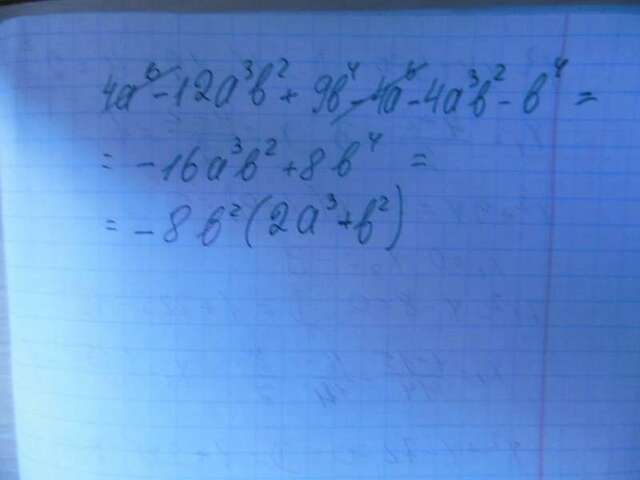 4a⁶ - 12a³b² + 9b⁴ - 4a⁶ - 4a³b² - b⁴ =
= -16a³b² + 8b⁴ =
= -8b²(2a³+b²)